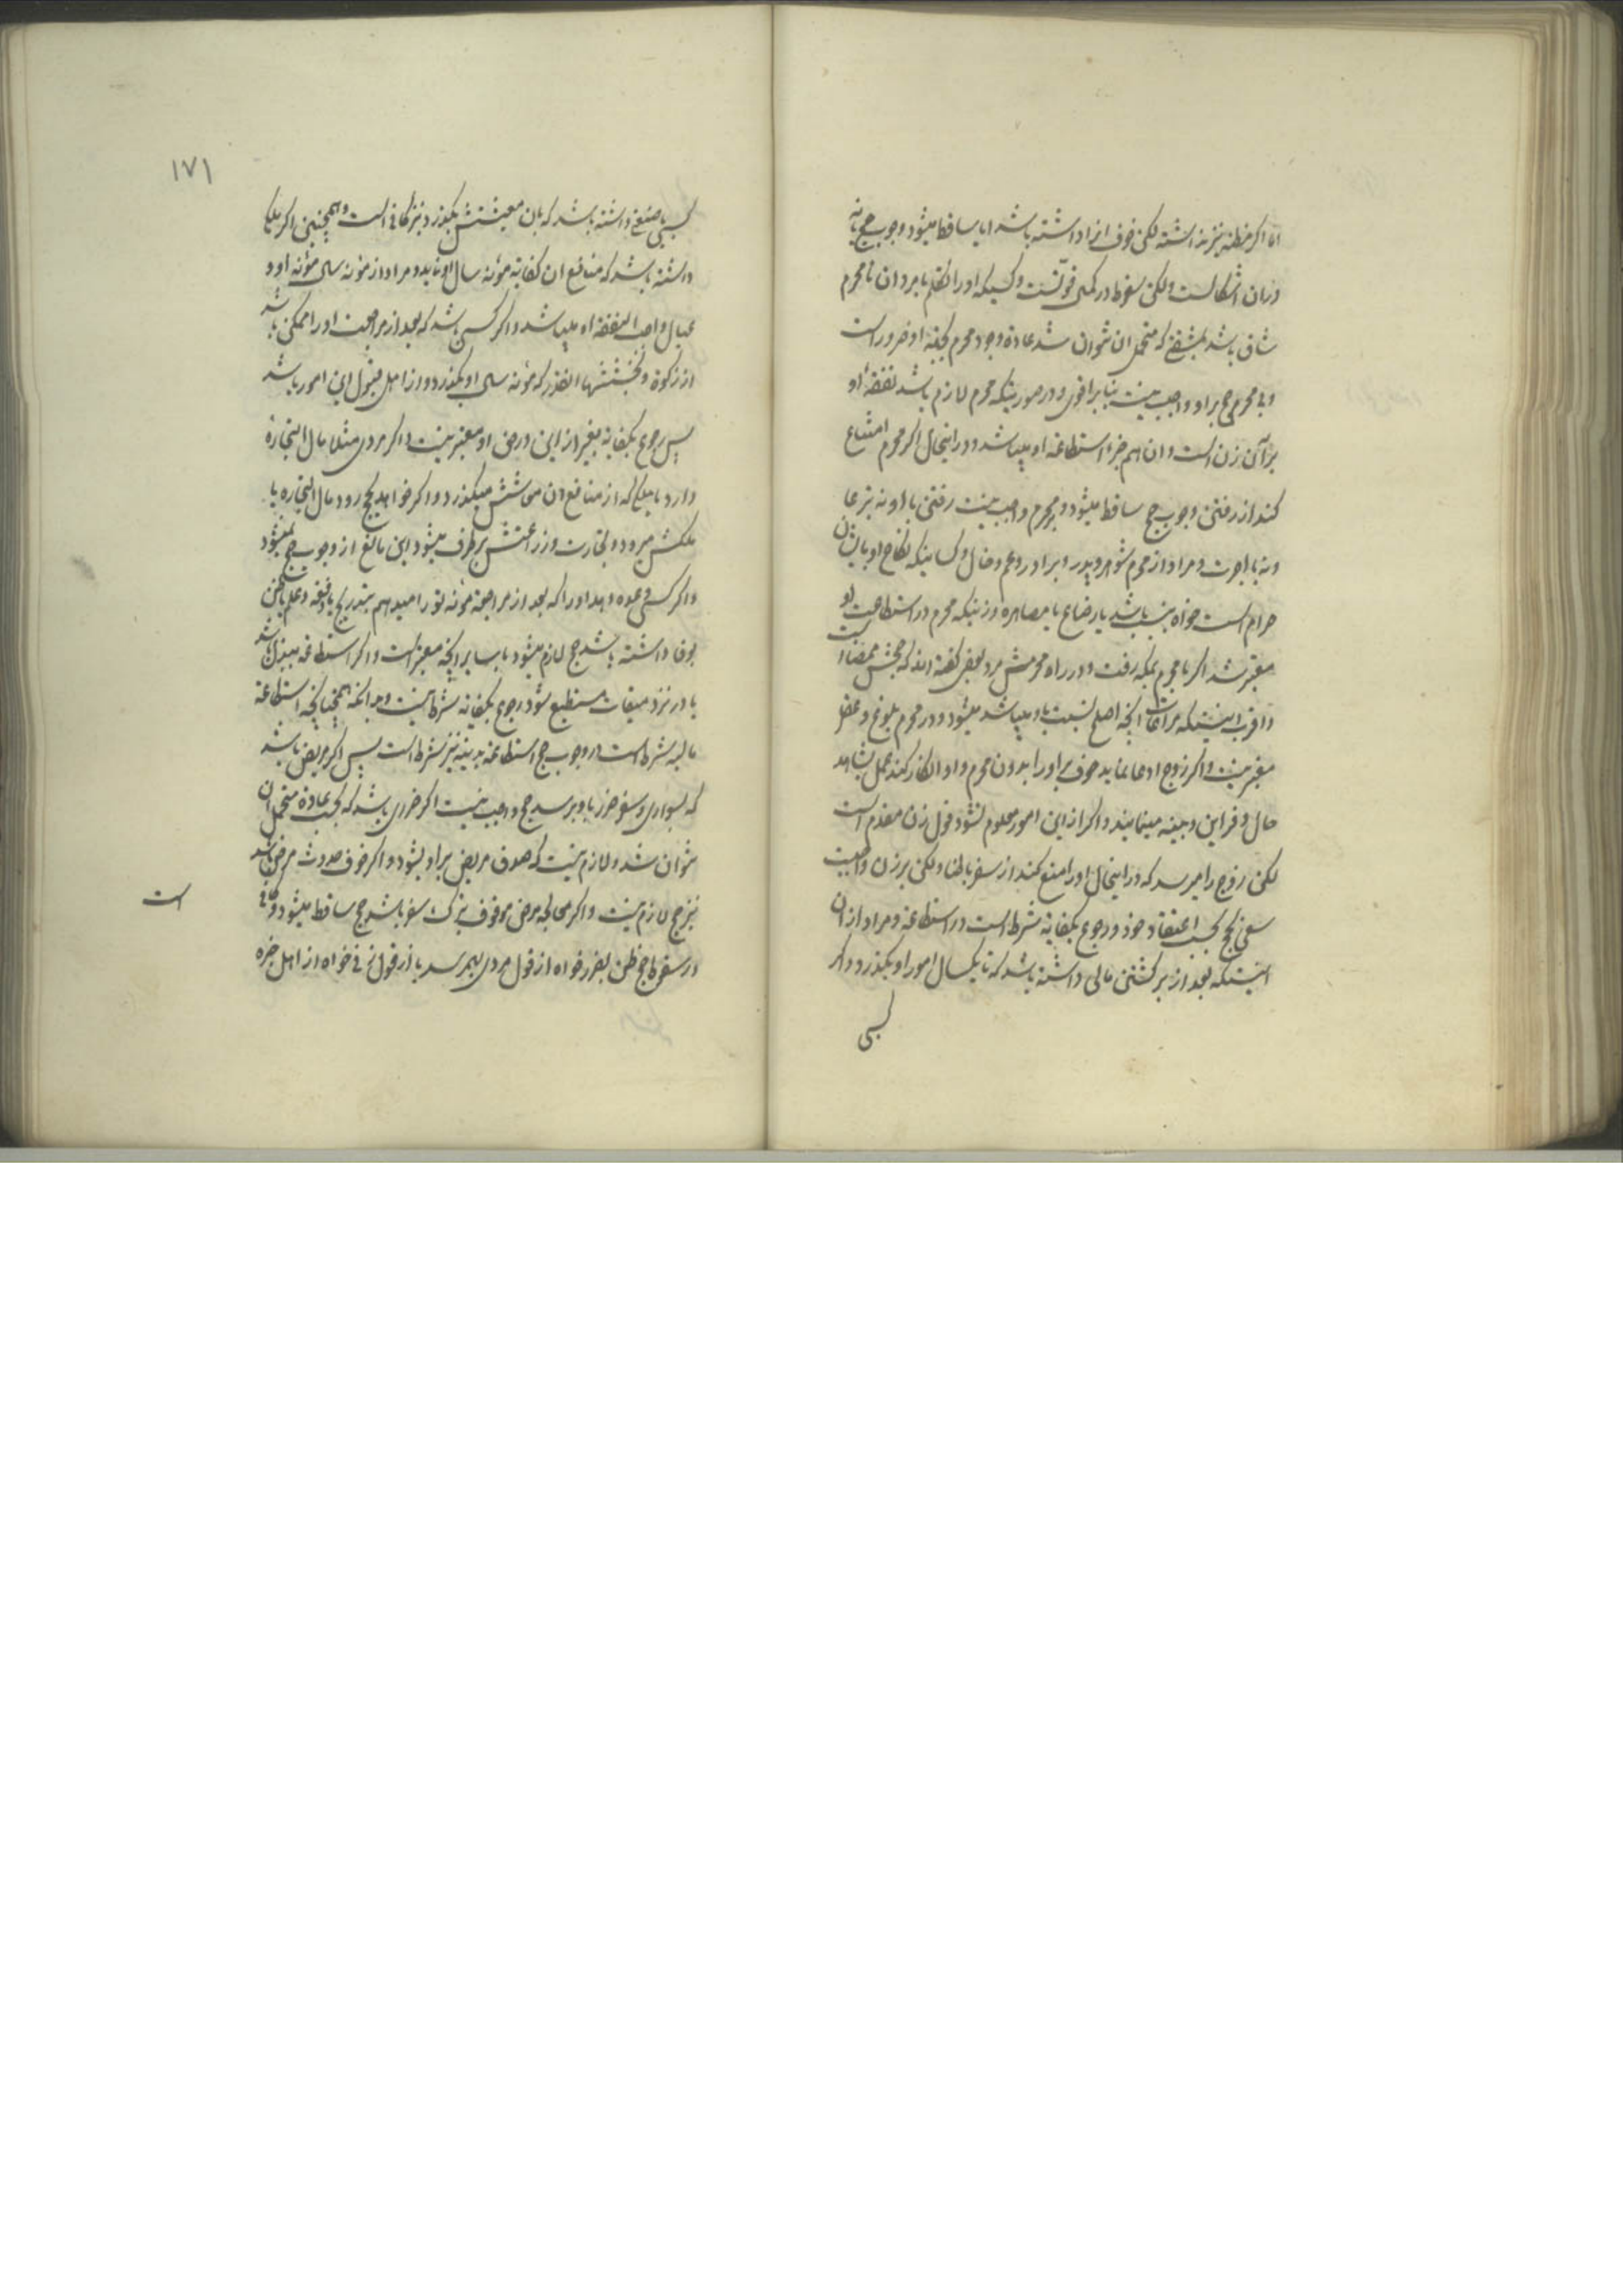 اما اگر مظنه نیز نداشته لکن خوف از او داشته باشد ایا ساقط میشود وجوب حج یا نه
دران اشکالست ولکن سقوط در کمی قویّست وکسیکه او را تکلم با مردان نامحرم
شاق باشد بمشقتی که متحمل ان نتوان شد عادة وجود محرم بجهة او ضرور است
وبی محرم حج بر او واجب نیست بنابر اقوی ودر صورتیکه محرم لازم باشد نفقهٔ او
بر آن زن است وان هم جزء استطاعة او میباشد ودر اینحال اگر محرم امتناع
کند از رفتن وجوب حج ساقط میشود وبر محرم واجب نیست رفتن با او نه تبرعا
ونه باجرت ومراد از محرم شوهر وپدر وبرادر وعم وخال وکسانیکه نکاح او بایشان
حرام است خواه بنسب باشد یا رضاع یا مصاهره وزنیکه محرم در استطاعت او
معتبر شد اگر با محرم بمکه رفت ودر راه محرمش مرد بعض گفته اند که حجش ممضا است
واقرب اینستکه مراعات انچه اصلح نسبت باو میباشد میشود ودر محرم بلوغ وعقل
معتبر نیست واگر زوج ادعا نماید خوف بر او را بدون محرم واو انکار کند عمل بشاهد
حال وقراین وبینه مینمایند واگر از این امور معلوم نشود قول زن مقدم است
لکن زوج را میرسد که در اینحال او را منع کند از سفر باطنا ولکن بر زن واجبست
سعی بحج بحسب اعتقاد خود ورجوع بکفایة شرط است در استطاعة ومراد از ان
اینستکه بعد از برگشتن مالی داشته باشد که تا یکسال امور او بگذرد واگر
کسبی
۱۷۱
کسبی یا صنعتی داشته باشد که بان معیشتش بگذرد نیز کافی است وهمچنین اگر ملکی
داشته باشد که منافع ان کفایة مؤنه سال او نماید ومراد از مؤنه سال مؤنه او و
عیال واجب النفقه او میباشد واگر کسی باشد که بعد از مراجعت او را ممکن باشد
از زکوة وبخششها انقدر که مؤنه سال او بگذرد واز اهل قبول این امور باشد
پس رجوع بکفایة بغیر از این در حق او معتبر نیست واگر مردی مثلا مال التجارة
دارد یا ملکی که از منافع ان معاشش میگذرد واگر خواهد بحج رود مال التجاره یا
ملکش میرود وتجارت وزراعتش برطرف میشود این مانع از وجوب حج نمیشود
واگر کسی وعده دهد او را که بعد از مراجعة مؤنه تو را میدهم بتدریج یا دفعة وعلم یا ظن
بوفا داشته باشد حج لازم میشود بنا بر انچه معتبر است واگر استطاعة ببذل باشد
یا در نزد میقات مستطیع شود رجوع بکفایه شرط نیست وبدانکه همچنانچه استطاعة
مالیه شرط است در وجوب حج استطاعة بدنیه نیز شرط است پس اگر مریض باشد
که بسواری وسفر ضرر باو برسد حج واجب نیست اگر ضرری باشد که بحسب عادة متحمل ان
نتوان شد ولازم نیست که صدق مریض بر او بشود واگر خوف حدوث مرض باشد
نیز حج لازم نیست واگر معالجه مرض موقوف بترک سفر باشد حج ساقط میشود وکافی
در سقوط حج ظن بضرر خواه از قول مردی بهم رسد یا از قول زنی خواه از اهل خبره
است